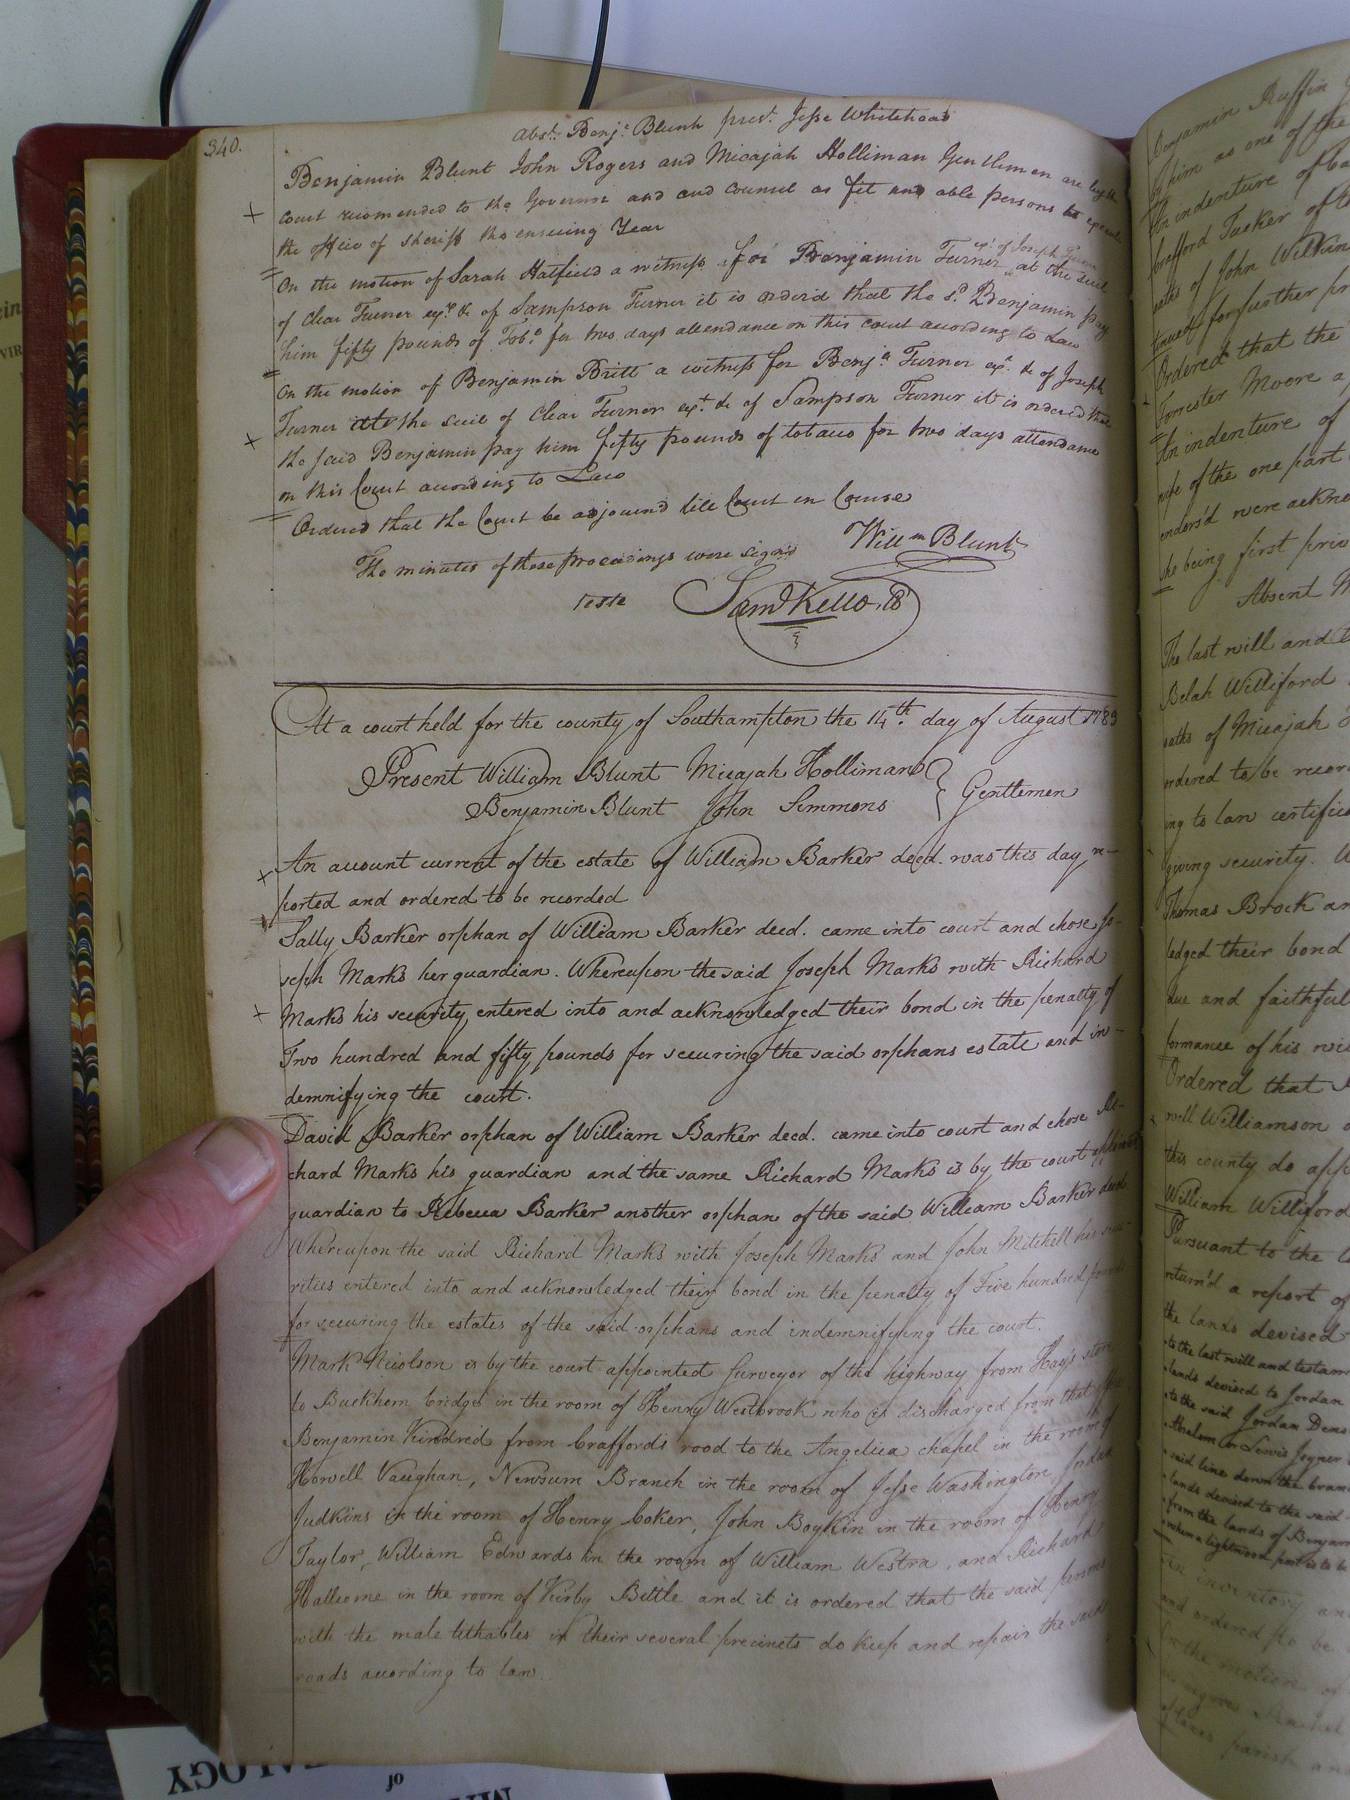 340.
Abst. Benjn. Blunt prest. Jesse Whitehead
Benjamin Blunt John Rogers and Micajah Holliman Gentlemen are by the
Court recomended to the Governor and and Council as fit and able persons to execute
the office of Sheriff the ensuing Year
On the motion of Sarah Hatfield a witness for Benjamin Turner exr. of Joseph Turner at the suit
of Clear Turner exr. &c of Sampson Turner it is orderd that the sd. Benjamin pay
him fifty pounds of Tobo. for two days attendance on this court acording to Law
On the motion of Benjamin Britt a witness for Benjn. Turner exr. &c of Joseph
Turner at the suit of Clear Turner exr. &c of Sampson Turner it is ordered that
the said Benjamin pay him fifty pounds of tobacco for two days attendance
on this Court according to Law
Ordered that the Court be adjournd till Court in Course
The minutes of these proceedings were signd Willm Blunt
Teste Saml Kello, CC
At a court held for the county of Southampton the 14th. day of August 1789
Present William Blunt Micajah Holliman
Benjamin Blunt John Simmons } Gentlemen
An account current of the estate of William Barker decd. was this day re-
ported and ordered to be recorded
Sally Barker orphan of William Barker decd. came into court and chose Jo-
seph Marks her guardian. Whereupon the said Joseph Marks with Richard
Marks his security entered into and acknowledged their bond in the penalty of
Two hundred and fifty pounds for securing the said orphans estate and in-
demnifying the court.
David Barker orphan of William Barker decd. came into court and chose Ri-
chard Marks his guardian and the same Richard Marks is by the court appointed
guardian to Rebecca Barker another orphan of the said William Barker decd.
Whereupon the said Richard Marks with Joseph Marks and John Mitchell his secu-
rities entered into and acknowledged their bond in the penalty of Five hundred pounds
for securing the estates of the said orphans and indemnifying the court.
Mark Nicolson is by the court appointed Surveyor of the highway from Hay's store
to Buckhorn bridge in the room of Henry Westbrook who is discharged from that office
Benjamin Kindred from Crafford's road to the Angelica chapel in the room of
Howell Vaughan, Newsum Branch in the room of Jesse Washington, Jordan
Judkins in the room of Henry Coker, John Boykin in the room of Henry
Taylor, William Edwards in the room of William Westra, and Richard
Hallcome in the room of Kirby Bittle and it is ordered that the said persons
with the male tithables in their several precincts do keep and repair the said
roads according to law.
Benjamin Ruffin
him as one of the
An indenture of
Crafford Tucker of the
oaths of John Wilkin
tinued for further pr
Ordered that the
Forrester Moore
An indenture of
wife of the one part
endors'd were ackno
she being first priv
Absent M
The last will and t
Belah Williford
oaths of Micajah
ordered to be recor
ing to law certific
giving security. W
Thomas Brock an
ledged their bond
due and faithful
formance of his
Ordered that
well Williamson
this county do app
William Williford
Pursuant to the
return'd a report of
the lands devised
to the last will and testam
lands devised to Jordan
to the said Jordan Dens
Absalom or Lewis Joyner
said line down the bran
lands devised to the said
from the lands of Benjam
where a lightwood post is to be
An inventory and
and ordered to be
On the motion of
parish and